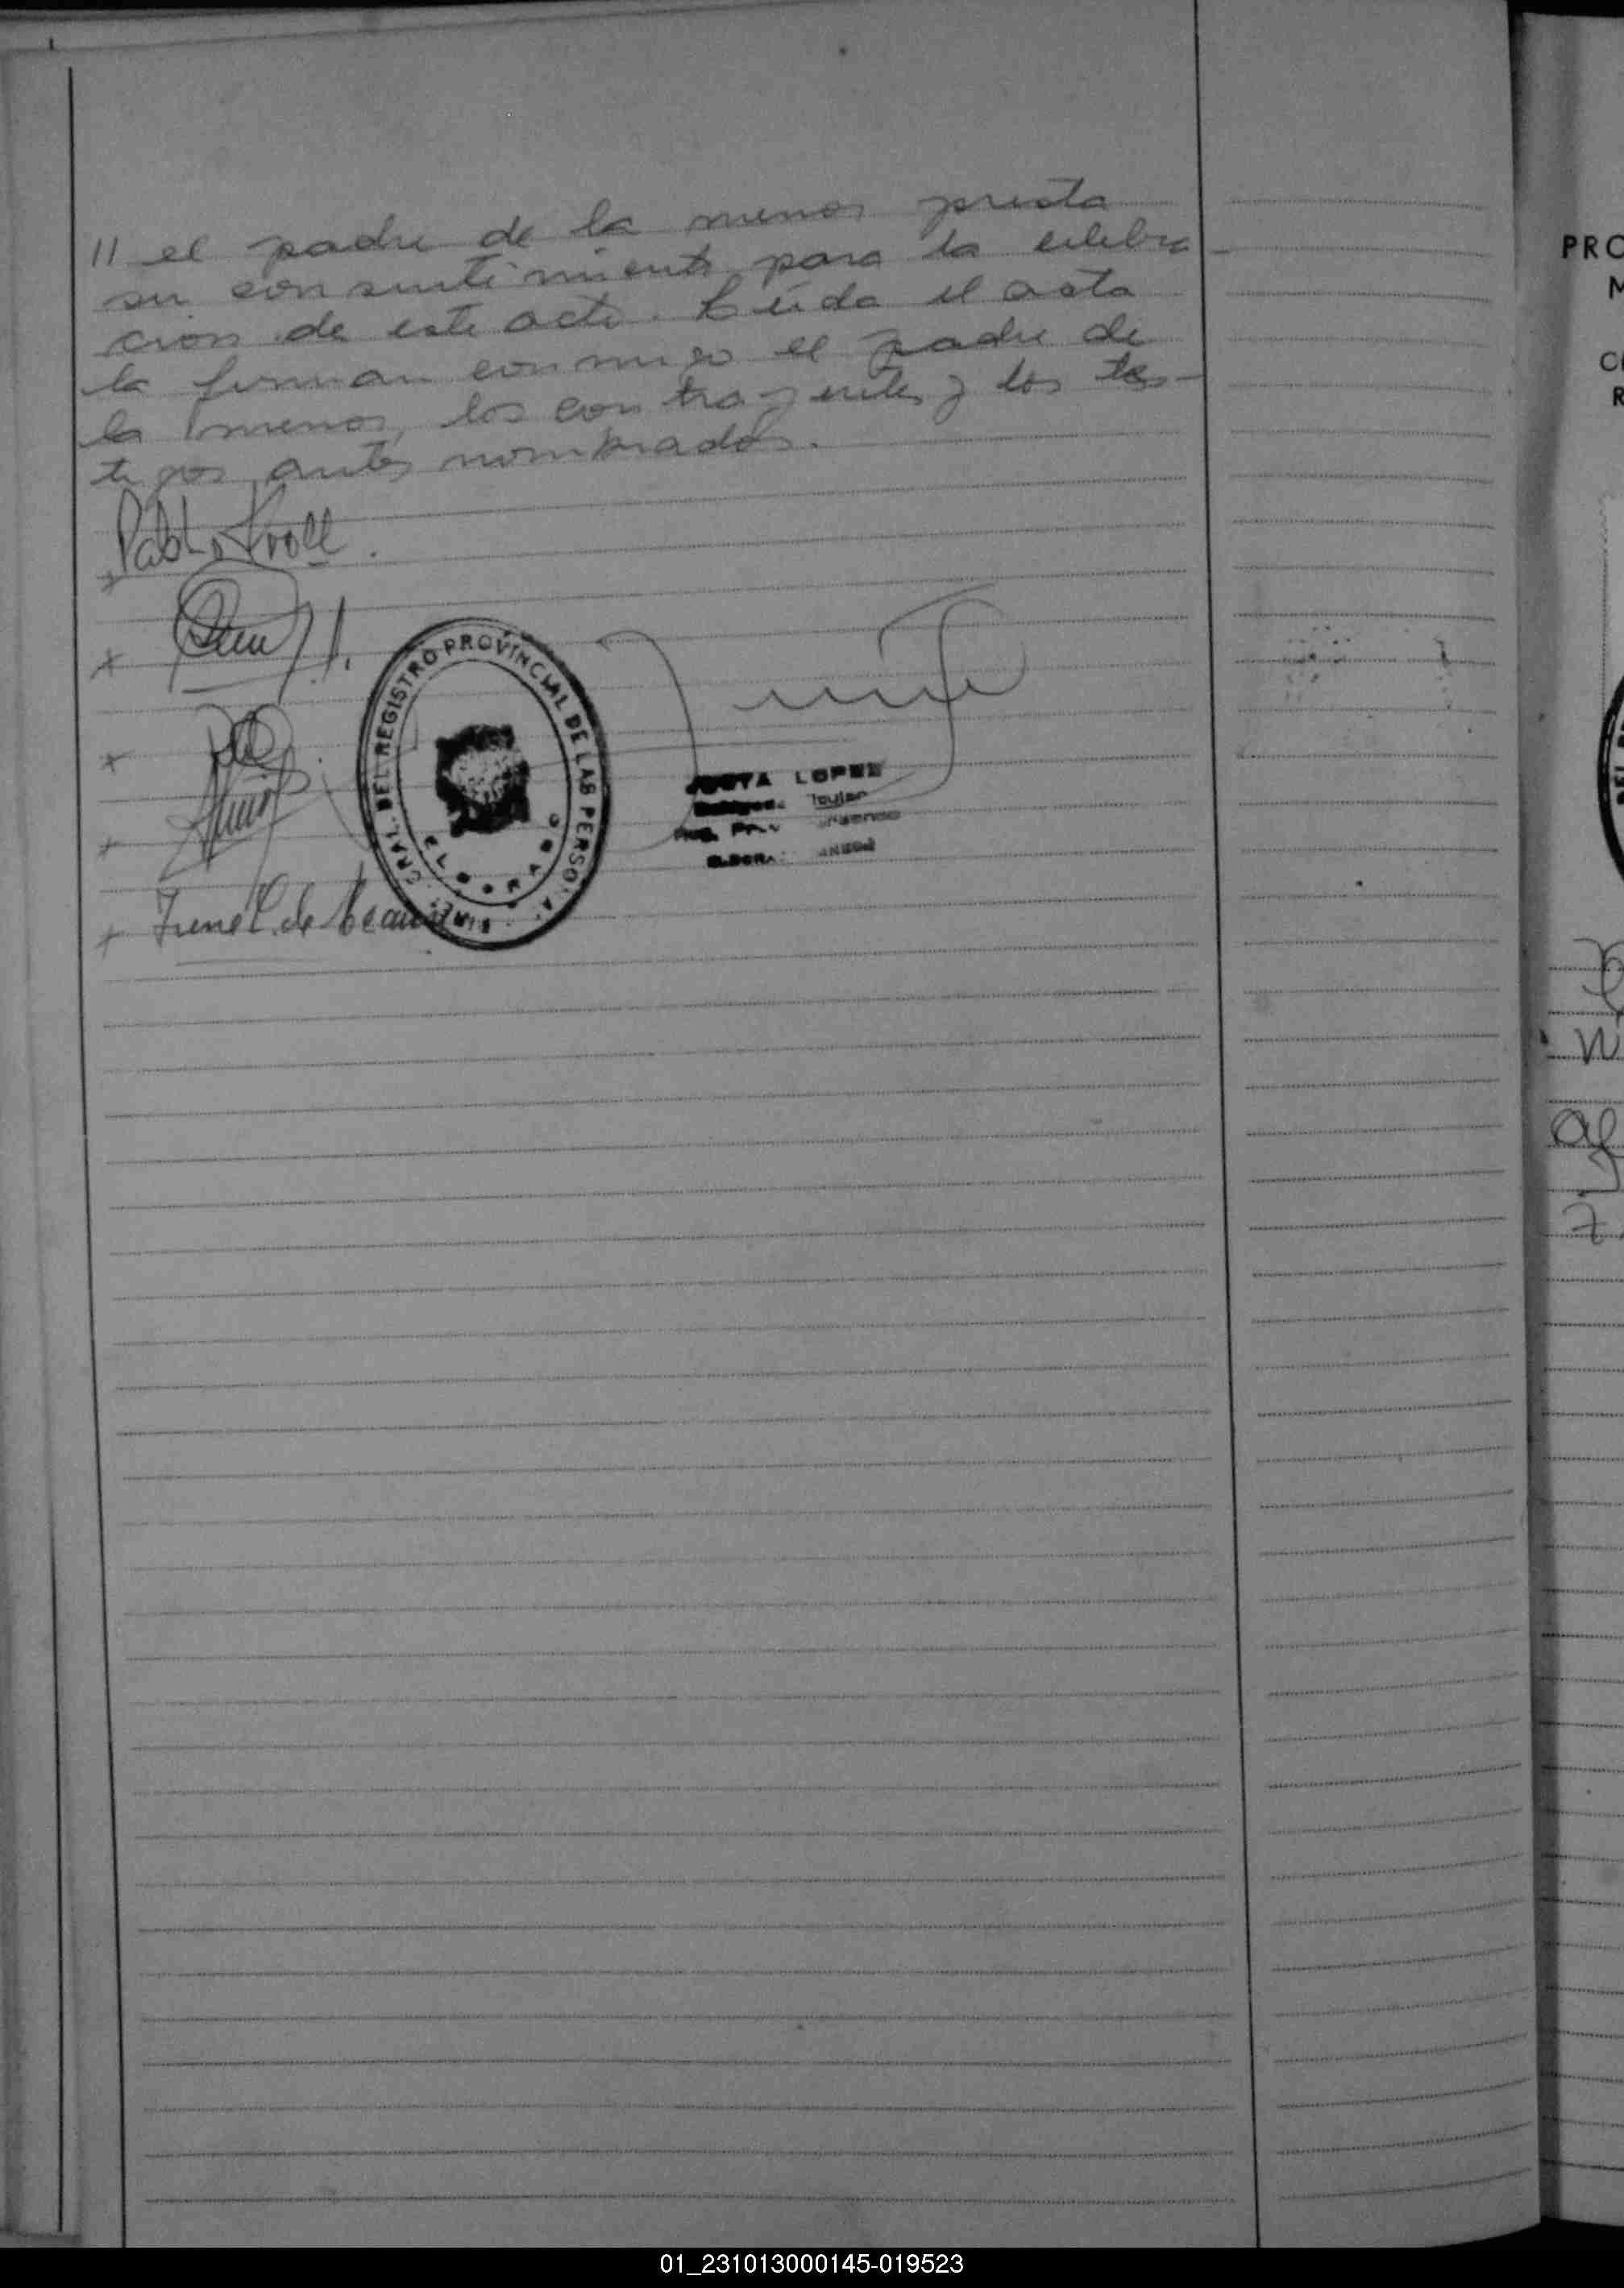 // el padre de la menor presta
su consentimiento para la celebra
cion de este acto. Leída el acta
la firman conmigo el padre de
la menor, los contrayentes y los tes-
tigos antes nombrados.
Pablo Kroll.
x
x
x
x Irene C. de
DIREC. GRAL. DEL REGISTRO PROVINCIAL DE LAS PERSONAS
ELDORADO
LOPEZ
Titular
PRO
M
C
R
W
al
7
01_231013000145-019523